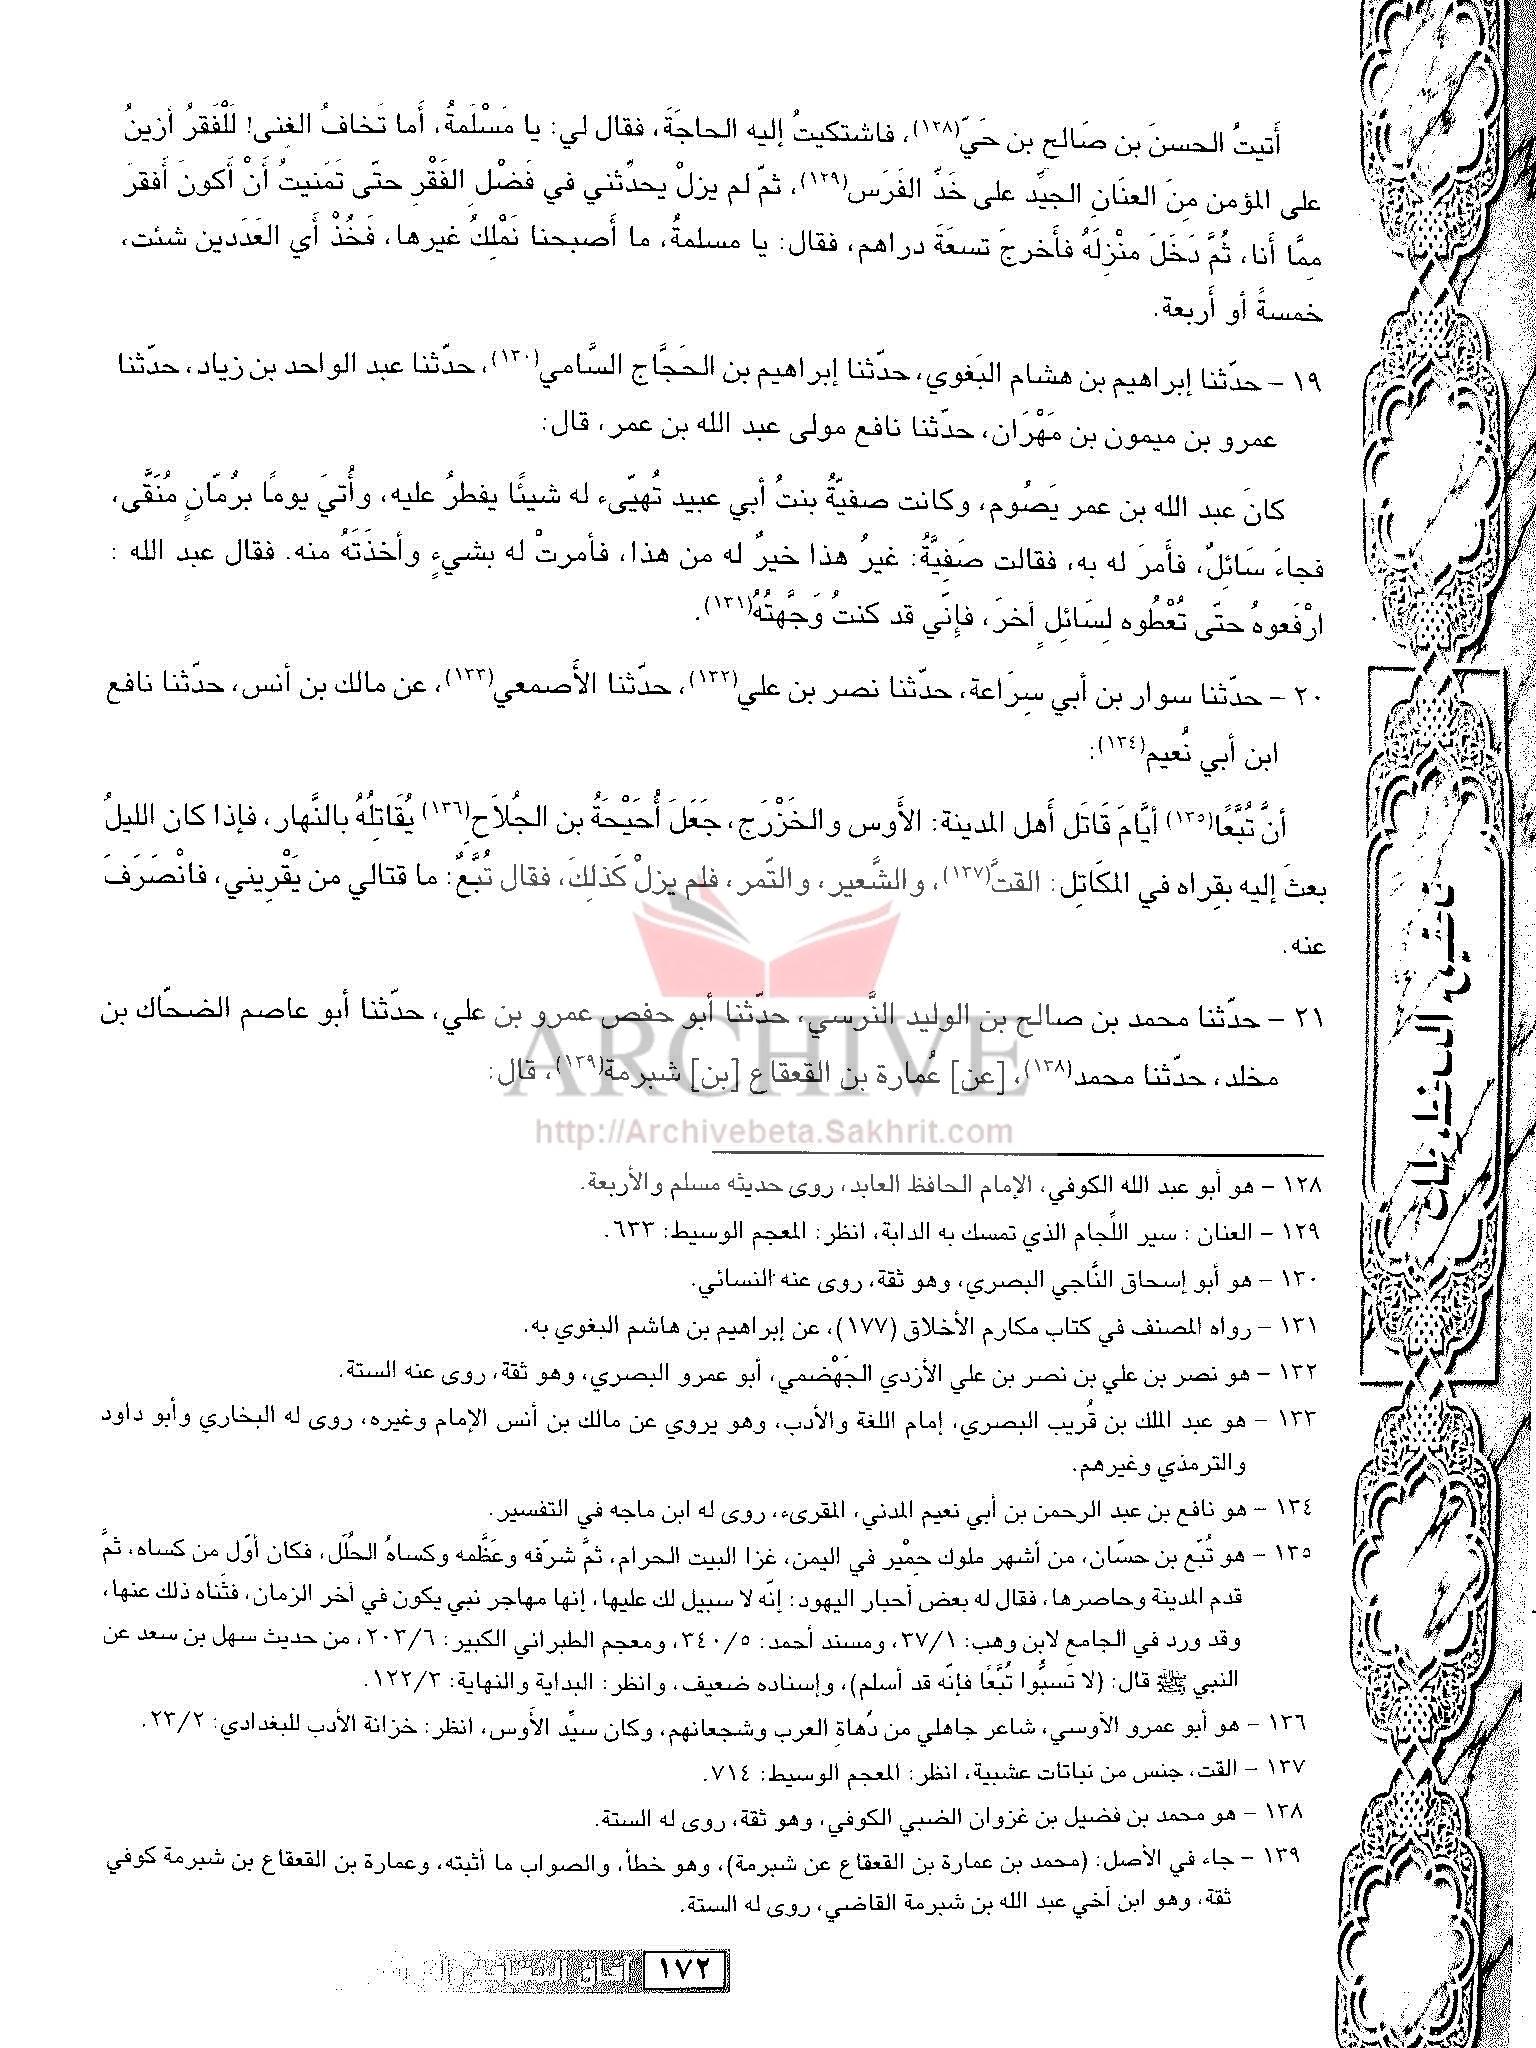 أَتيتُ الحسنَ بن صَالحِ بن حَيّ(١٢٨)، فاشتكيتُ إليه الحاجَةَ، فقال لي: يا مَسْلَمةُ، أَما تَخافُ الغِنى! لَلْفَقرُ أزينُ
على المؤمن مِنَ العنَانِ الجيِّد على خَدِّ الفَرَس(١٢٩)، ثمّ لم يزلْ يحدِّثني في فَضْلِ الفَقْرِ حتّى تَمَنيتُ أَنْ أَكونَ أَفقرَ
مِمَّا أَنا، ثُمَّ دَخَلَ منْزِلَهُ فأَخرجَ تسعَةَ دراهم، فقال: يا مسلمةُ، ما أَصبحنا نَمْلِكُ غيرها، فَخُذْ أَي العَدَدين شئت،
خمسةً أو أَربعة.
١٩ – حدّثنا إبراهيم بن هشام البَغوي، حدّثنا إبراهيم بن الحَجَّاج السَّامي(١٣٠)، حدّثنا عبد الواحد بن زياد، حدّثنا
عمرو بن ميمون بن مَهْرَان، حدّثنا نافع مولى عبد الله بن عمر، قال:
كانَ عبد الله بن عمر يَصُوم، وكانت صفيّةُ بنتُ أبي عبيد تُهيّىء له شيئًا يفطرُ عليه، وأُتيَ يومًا برُمّانٍ مُنَقًّى،
فجاءَ سَائلٌ، فأَمرَ له به، فقالت صَفِيَّةُ: غيرُ هذا خيرٌ له من هذا، فأمرتْ له بشيءٍ وأخذَتَهُ منه. فقال عبد الله :
ارْفَعوهُ حتّى تُعْطُوه لِسَائلٍ آخرَ، فإِنّي قد كنتُ وَجَّهتُهُ(١٣١).
٢٠ – حدّثنا سوار بن أبي سِرَاعة، حدّثنا نصر بن علي(١٣٢)، حدّثنا الأَصمعي(١٣٣)، عن مالك بن أنس، حدّثنا نافع
ابن أبي نُعيم(١٣٤):
أنَّ تُبَّعًا(١٣٥) أيَّامَ قَاتَل أَهل المدينة: الأَوس والخَزْرَج، جَعَلَ أُحَيْحَةُ بن الجُلاَحِ(١٣٦) يُقَاتِلُهُ بالنَّهار، فإذا كان الليلُ
بعثَ إليه بقِراه في المكَاتِل: القتَّ(١٣٧)، والشَّعير، والتّمر، فلم يزلْ كَذلِكَ، فقال تُبَّعٌ: ما قتالي من يَقْرِيني، فانْصَرَفَ
عنه.
٢١ – حدّثنا محمد بن صالح بن الوليد النَّرسي، حدّثنا أبو حفص عمرو بن علي، حدّثنا أبو عاصم الضحّاك بن
مخلد، حدّثنا محمد(١٣٨)، [عن] عُمارة بن القعقاع [بن] شبرمة(١٣٩)، قال:
ARCHIVE
http://Archivebeta.Sakhrit.com
١٢٨ – هو أبو عبد الله الكوفي، الإمام الحافظ العابد، روى حديثه مسلم والأربعة.
١٢٩ – العنان : سير اللِّجام الذي تمسك به الدابة، انظر: المعجم الوسيط: ٦٣٣.
١٣٠ – هو أبو إسحاق النَّاجي البصري، وهو ثقة، روى عنه النسائي.
١٣١ – رواه المصنف في كتاب مكارم الأخلاق (١٧٧)، عن إبراهيم بن هاشم البغوي به.
١٣٢ – هو نصر بن علي بن نصر بن علي الأزدي الجَهْضمي، أبو عمرو البصري، وهو ثقة، روى عنه الستة.
١٣٣ – هو عبد الملك بن قُريب البصري، إمام اللغة والأدب، وهو يروي عن مالك بن أنس الإمام وغيره، روى له البخاري وأبو داود
والترمذي وغيرهم.
١٣٤ – هو نافع بن عبد الرحمن بن أبي نعيم المدني، المقرىء، روى له ابن ماجه في التفسير.
١٣٥ – هو تُبّع بن حسّان، من أشهر ملوك حِمْير في اليمن، غزا البيت الحرام، ثمَّ شرّفه وعَظَّمه وكساهُ الحُلَل، فكان أوّل من كساه، ثمَّ
قدم المدينة وحاصرها، فقال له بعض أحبار اليهود: إنّه لا سبيل لك عليها، إنها مهاجر نبي يكون في آخر الزمان، فثَناه ذلك عنها،
وقد ورد في الجامع لابن وهب: ٣٧/١، ومسند أحمد: ٣٤٠/٥، ومعجم الطبراني الكبير: ٢٠٣/٦، من حديث سهل بن سعد عن
النبي ﷺ قال: (لا تَسبُّوا تُبَّعًا فإنّه قد أسلم)، وإسناده ضعيف، وانظر: البداية والنهاية: ١٢٢/٣.
١٣٦ – هو أبو عمرو الأوسي، شاعر جاهلي من دُهاةِ العرب وشجعانهم، وكان سيِّد الأَوس، انظر: خزانة الأدب للبغدادي: ٢٣/٢.
١٣٧ – القت، جنس من نباتات عشبية، انظر: المعجم الوسيط: ٧١٤.
١٣٨ – هو محمد بن فضيل بن غزوان الضبي الكوفي، وهو ثقة، روى له الستة.
١٣٩ – جاء في الأصل: (محمد بن عمارة بن القعقاع عن شبرمة)، وهو خطأ، والصواب ما أثبته، وعمارة بن القعقاع بن شبرمة كوفي
ثقة، وهو ابن أخي عبد الله بن شبرمة القاضي، روى له الستة.
١٧٢